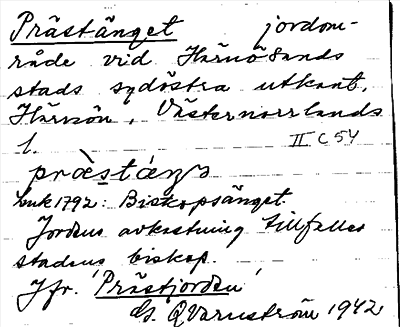 Prästänget jordom-
råde vid Härnösands
stads sydöstra utkant,
Härnön, Västernorrlands
l. II C 54
præ̀stáŋə
Luk 1792: Biskopsänget.
Jordens avkastning tillfaller
stadens biskop.
Jfr. 'Prästjorden'
G. Qvarnström 1942